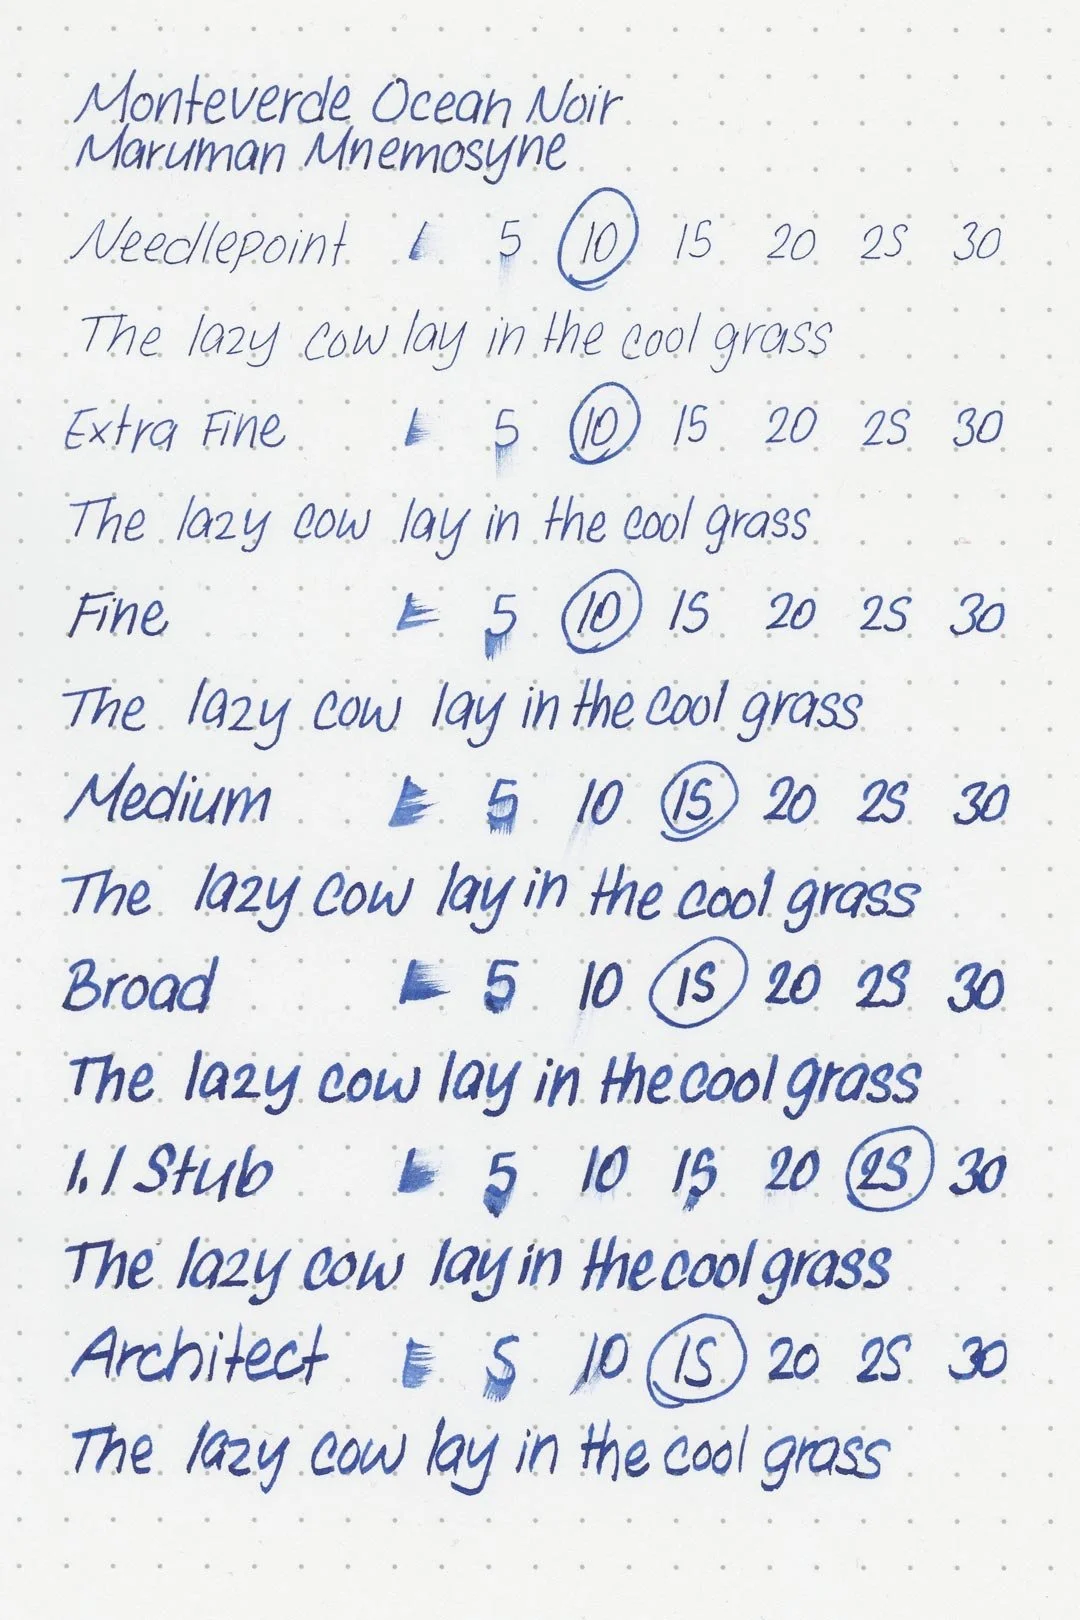 Monteverde Ocean Noir
Maruman Mnemosyne
Needlepoint 1 5 10 15 20 25 30
The lazy cow lay in the cool grass
Extra Fine 1 5 10 15 20 25 30
The lazy cow lay in the cool grass
Fine 1 5 10 15 20 25 30
The lazy cow lay in the cool grass
Medium 1 5 10 15 20 25 30
The lazy cow lay in the cool grass
Broad 1 5 10 15 20 25 30
The lazy cow lay in the cool grass
1.1 Stub 1 5 10 15 20 25 30
The lazy cow lay in the cool grass
Architect 1 5 10 15 20 25 30
The lazy cow lay in the cool grass